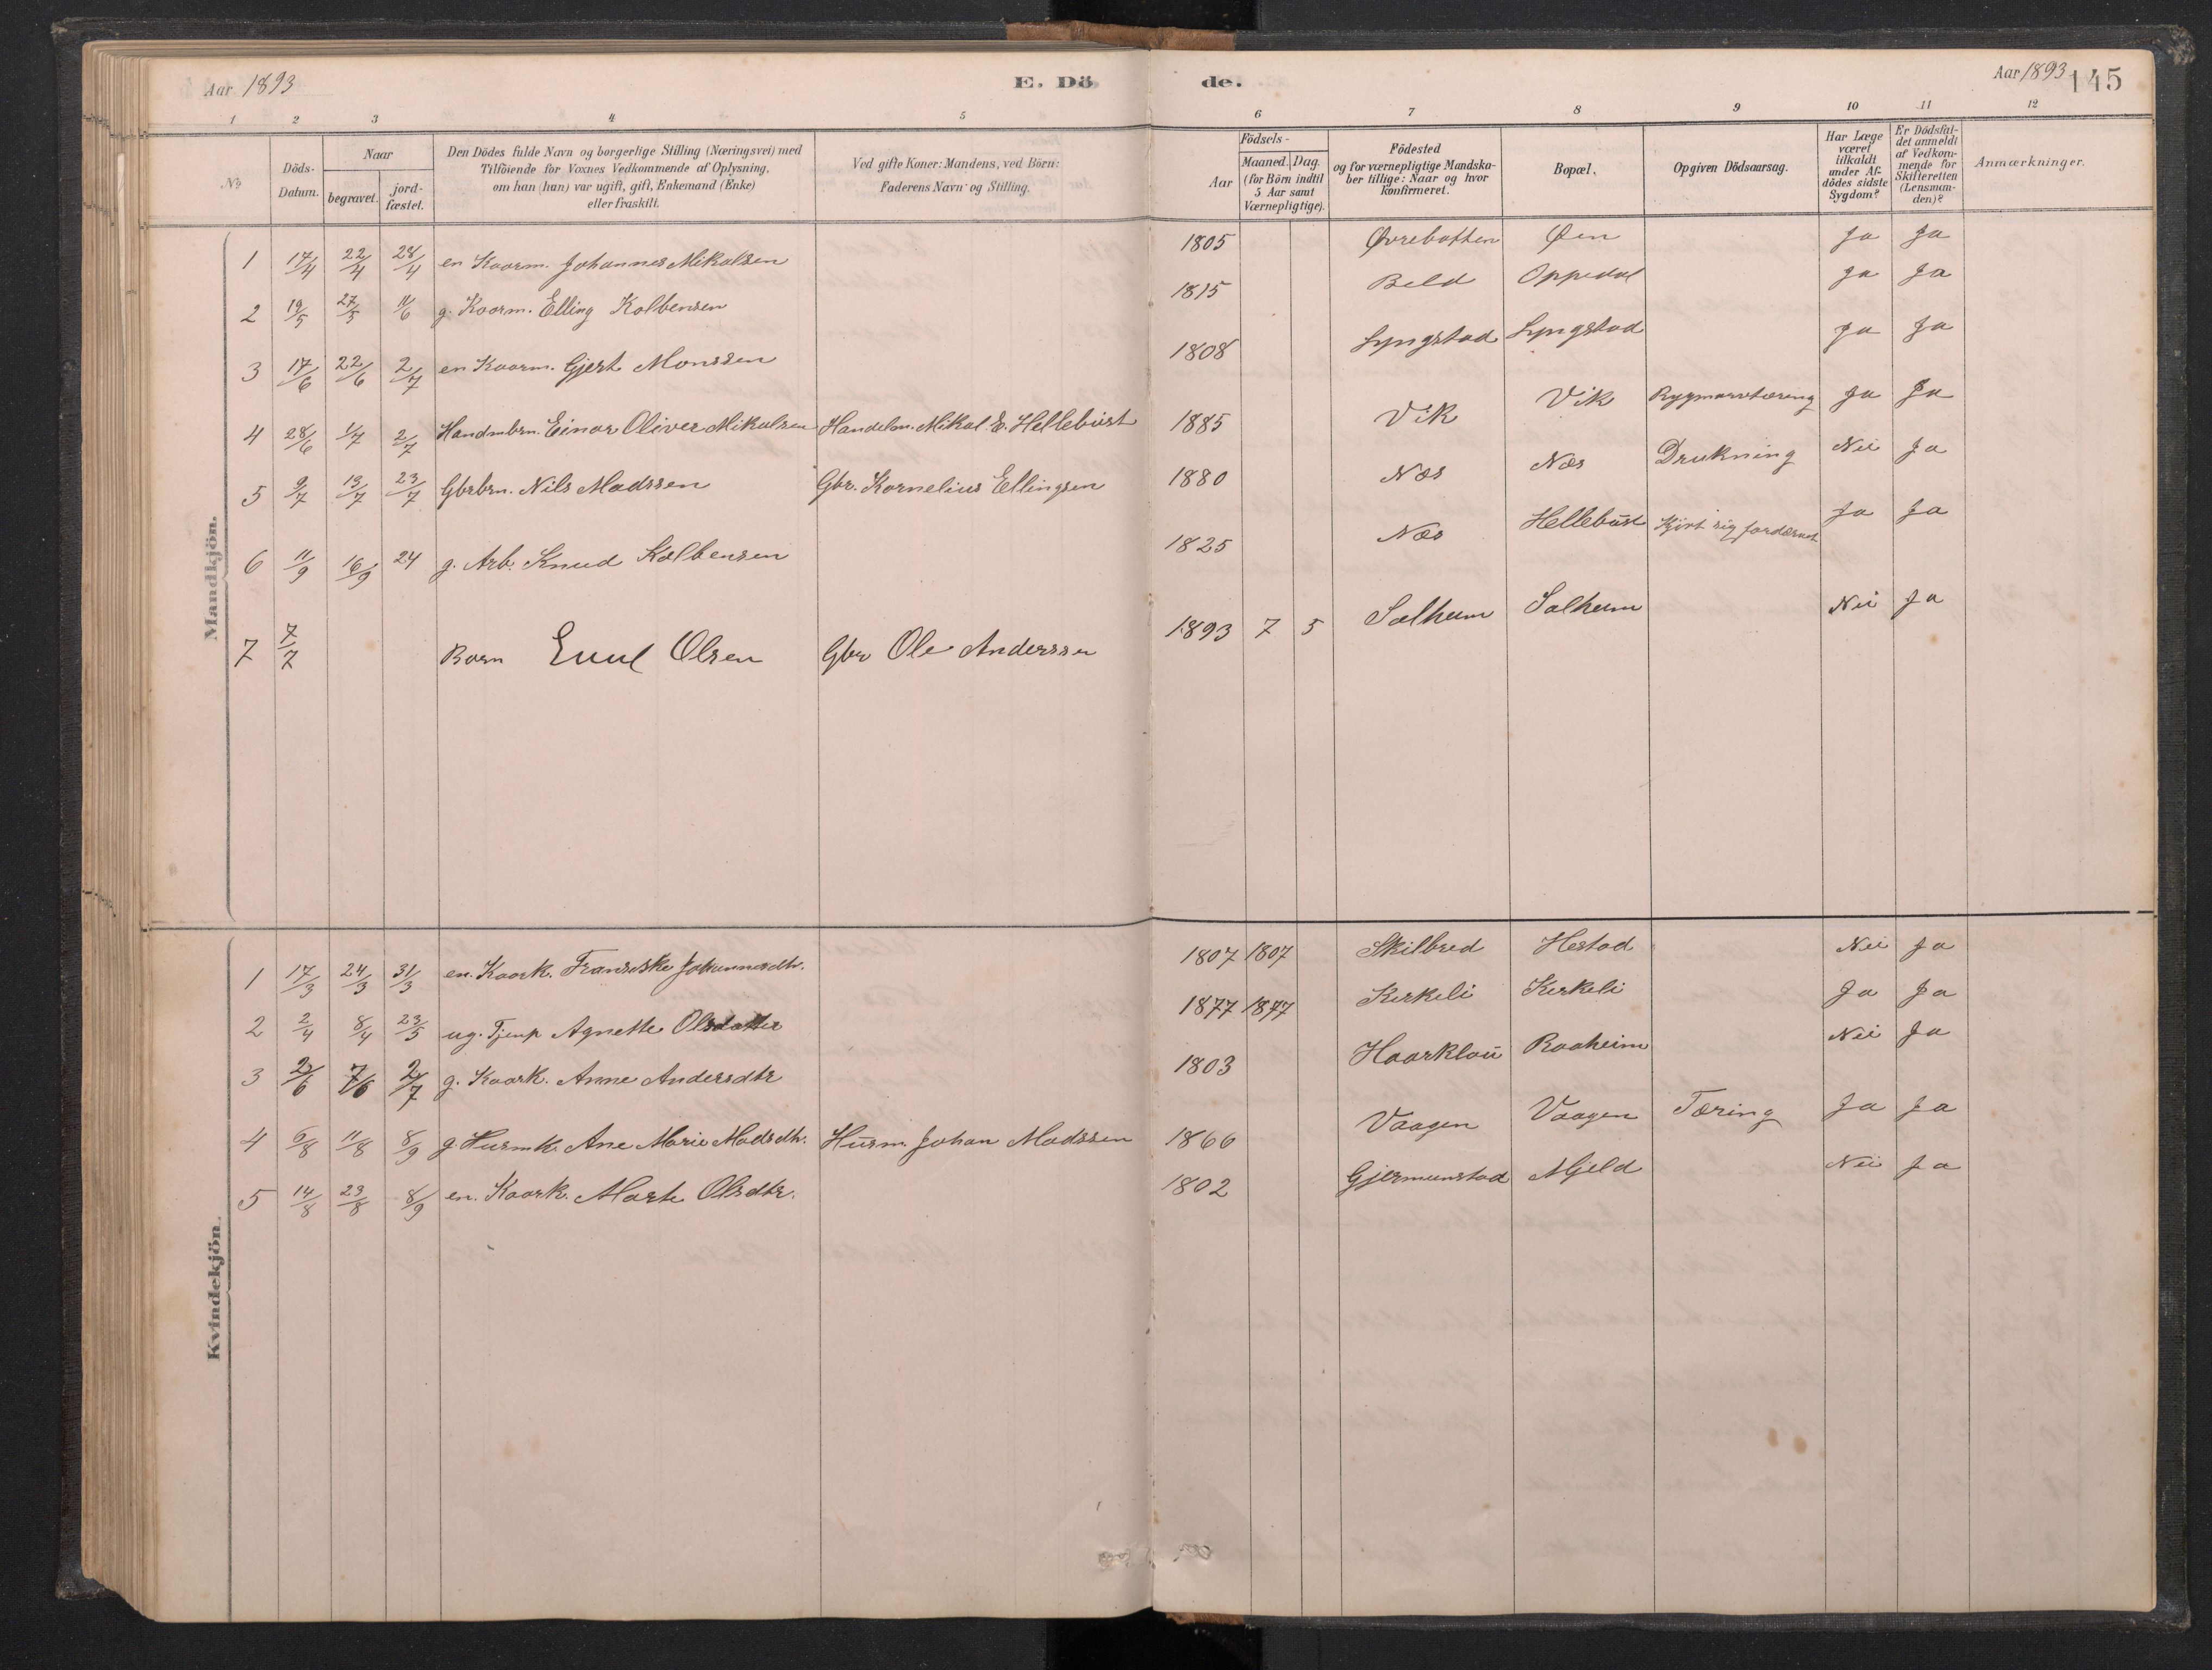 Aar 1893
E. Dö
de.
Aar 1893
145
1 2 3 4 5 6 7 8 9 10 11 12
No
Döds-Datum.
Naar
begravet.
jord-fæstet.
Den Dödes fulde Navn og borgerlige Stilling (Næringsvei) med
Tilföiende for Voxnes Vedkommende af Oplysning,
om han (hun) var ugift, gift, Enkemand (Enke)
eller fraskilt.
Ved gifte Koner: Mandens, ved Börn:
Faderens Navn og Stilling.
Födsels-
Aar
Maaned. Dag.
(for Börn indtil
5 Aar samt
Værnepligtige).
Födested
og for værnepligtige Mandska-
ber tillige: Naar og hvor
konfirmeret.
Bopæl.
Opgiven Dödsaarsag.
Har Læge
været
tilkaldt
under Af-
dödes sidste
Sygdom?
Er Dödsfal-
det anmeldt
af Vedkom-
mende for
Skifteretten
(Lensman-
den)?
Anmærkninger.
Mandkjön.
1 17/4 22/4 28/4 en Kaarm. Johannes Mikalsen 1805 Øvrebotten Øen Ja Ja
2 19/5 27/5 11/6 g. Kaarm. Elling Kolbensen 1815 Beld Oppedal Ja Ja
3 17/6 22/6 2/7 en Kaarm. Gjert Monssen 1808 Lyngstad Lyngstad Ja Ja
4 28/6 1/7 2/7 Handmbrn. Einar Oliver Mikalsen Handelsm. Mikal E. Hellebüst 1885 Vik Vik Rygmarvstæring Ja Ja
5 9/7 13/7 23/7 Gbrbrn. Nils Madssen Gbr. Kornelius Ellingsen 1880 Næs Næs Drukning Nei Ja
6 11/9 16/9 24 g. Arb. Knud Kolbensen 1825 Næs Hellebüst Kjört sig fordærvet Ja Ja
7 7/7 Barn Emil Olsen Gbr Ole Anderssen 1893 7 5 Solheim Solheim Nei Ja
Kvindekjön.
1 17/3 24/3 31/3 en. Kaark. Franseske Johannesdtr. 1807 1807 Skilbred Hestad Nei Ja
2 2/4 8/4 23/5 ug. Tjenp Agnette Olsdatter 1877 1877 Kirkeli Kirkeli Ja Ja
3 2/6 7/6 2/7 g. Kaark. Anne Andersdtr 1803 Haarklau Raaheim Nei Ja
4 6/8 11/8 8/9 g. Husmk. Ane Marie Madsdtr. Husm. Johan Madssen 1866 Vaagen Vaagen Tæring Ja Ja
5 14/8 23/8 8/9 en. Kaark. Marte Olsdtr. 1802 Gjermunstad Mjeld Nei Ja